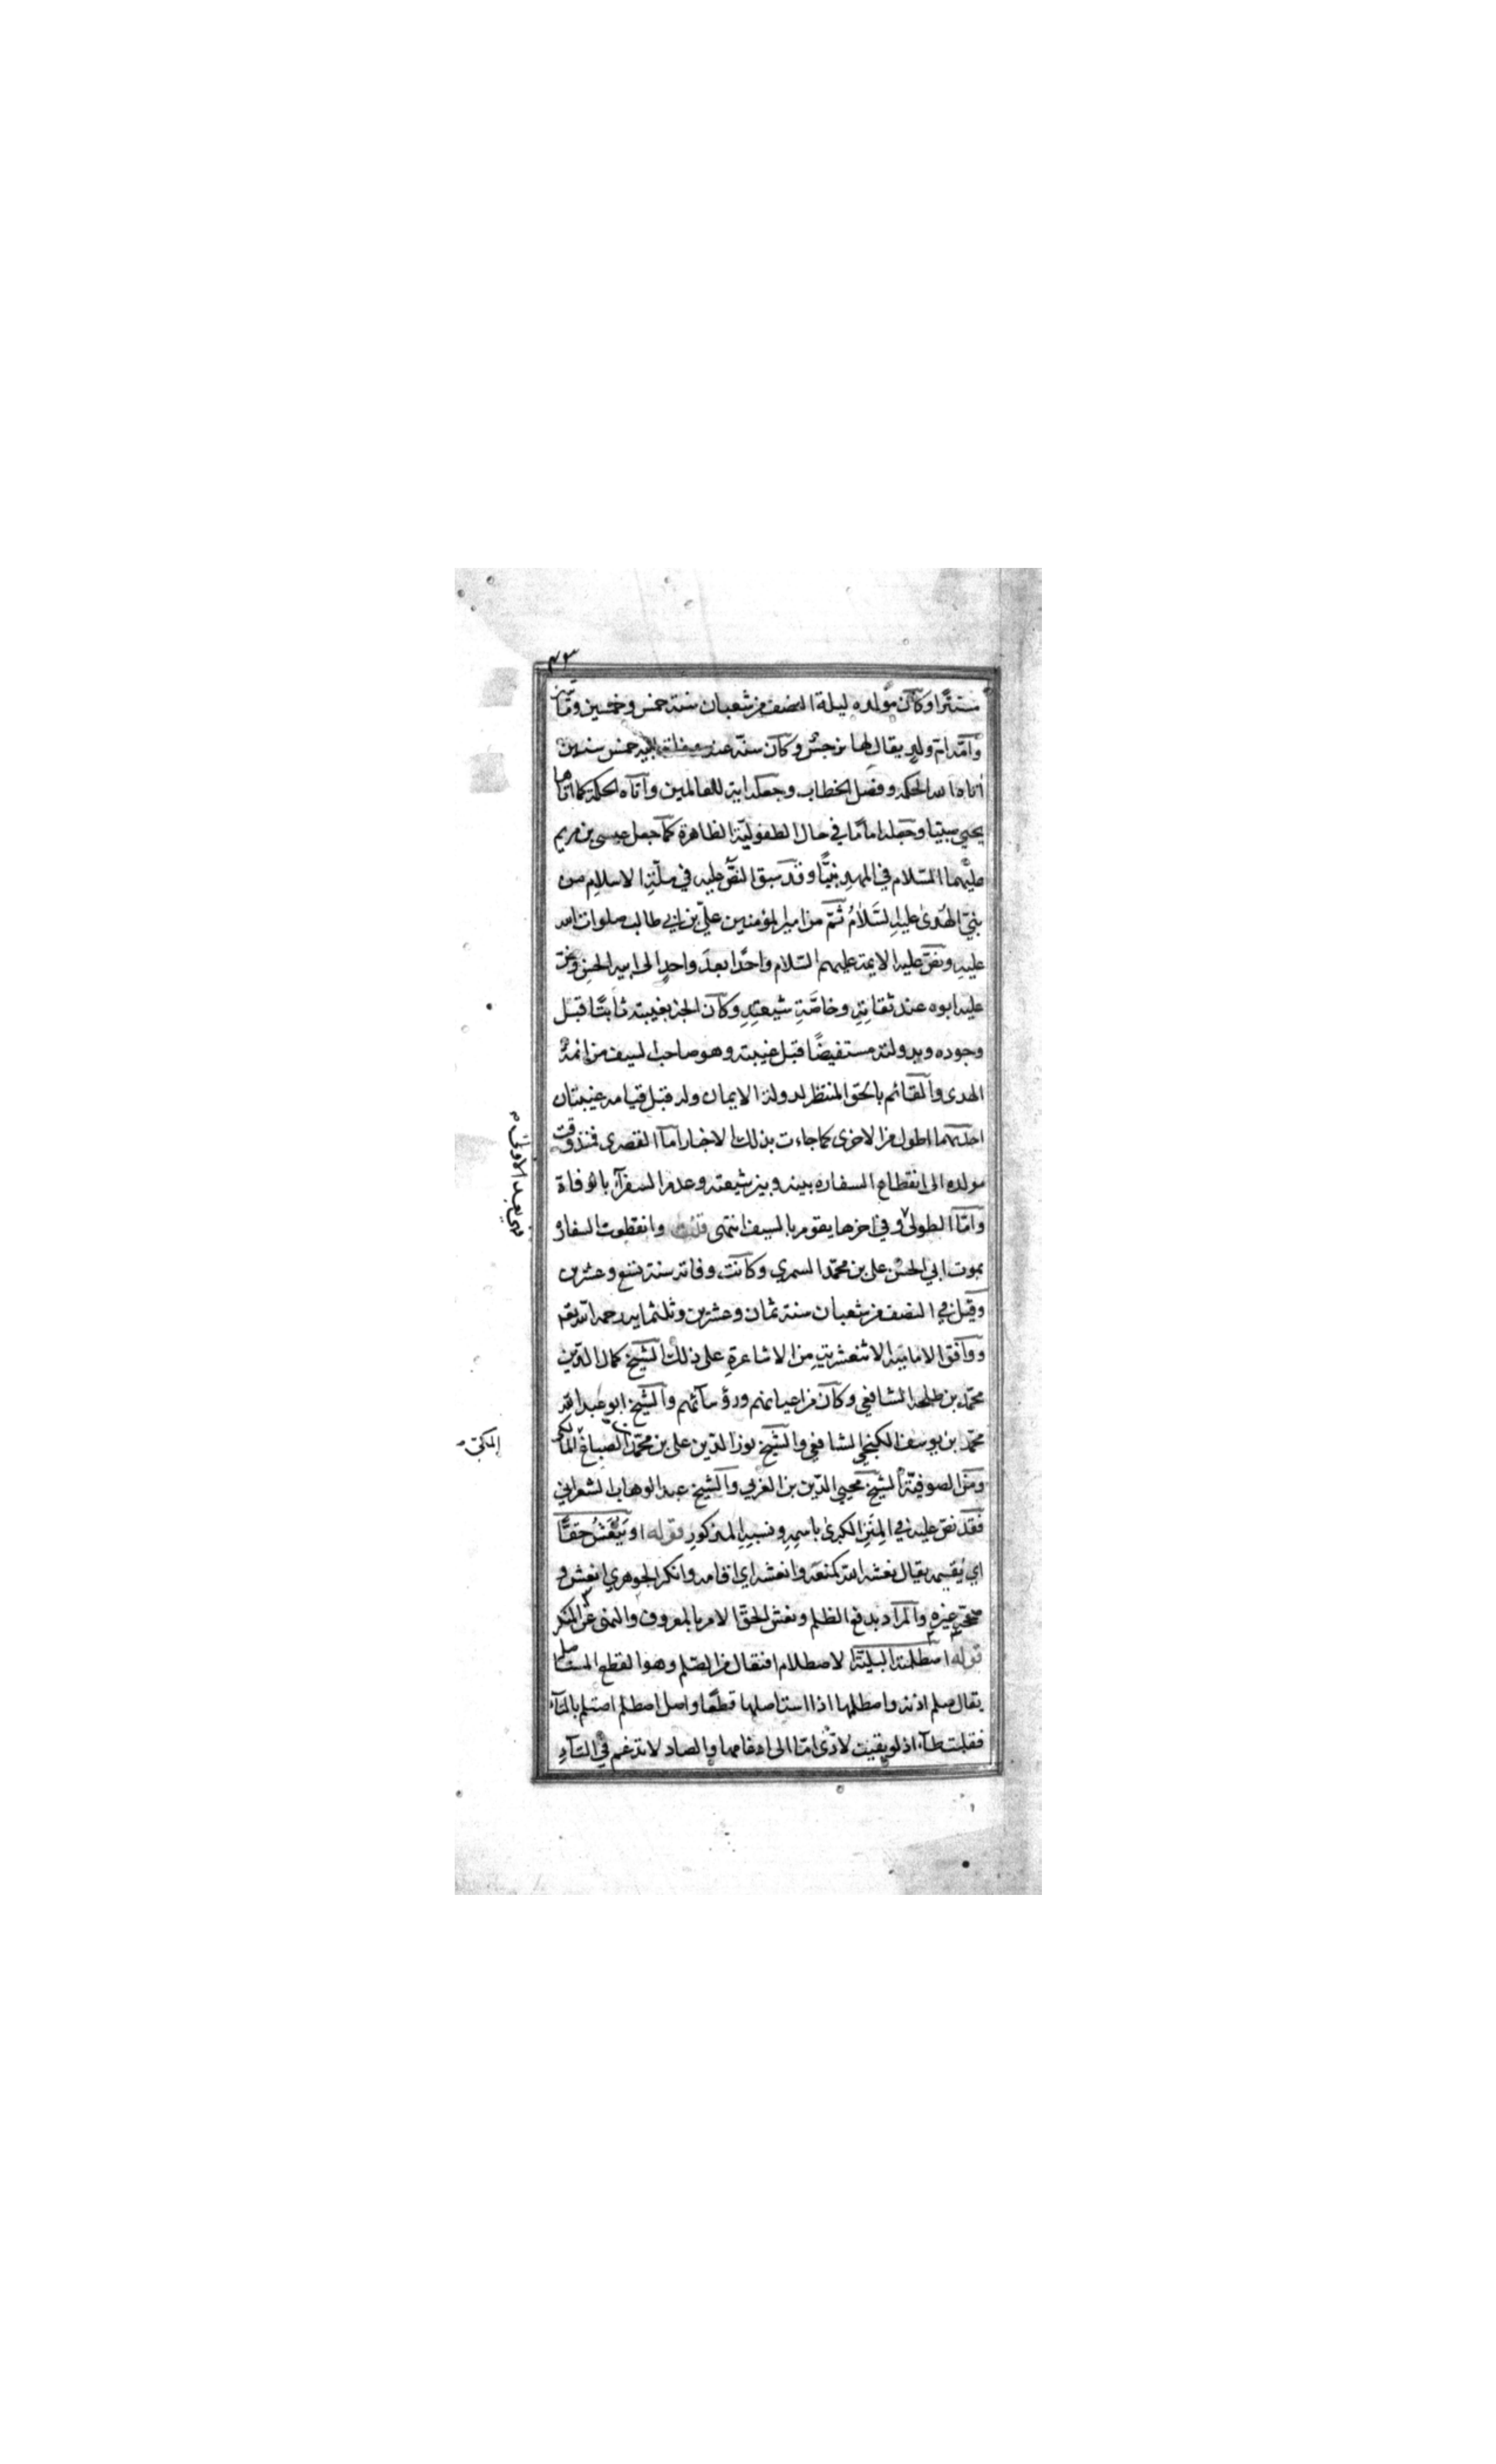 ٤٣
مستترا وكان مولده ليلة النصف من شعبان سنة خمس وخمسين ومأتين
وامه ام ولد يقال لها نرجس وكان سنه عند وفات ابيه خمس سنين
اتاه الله الحكمة وفصل الخطاب وجعله اية للعالمين وآتاه الحكمة كما اتاها
يحيى صبيا وجعله اماما في حال الطفولية الظاهرة كما جعل عيسى بن مريم
عليهما السلام في المهد نبيا وقد سبق النص عليه في ملة الاسلام من
نبي الهدى عليه السلام ثم من امير المؤمنين علي بن ابي طالب صلوات الله
عليه ونص عليه الايمة عليهم السلام واحدا بعد واحد الى ابيه الحسن ونص
عليه ابوه عند ثقاته وخاصة شيعته وكان الخبر بغيبته ثابتا قبل
وجوده وبدولته مستفيضا قبل غيبته وهو صاحب السيف من ائمة
الهدى والقائم بالحق المنتظر لدولة الايمان وله قبل قيامه غيبتان
احدىهما اطول من الاخرى كما جاءت بذلك الاخبار اما القصرى فمنذ وقت
مولده الى انقطاع السفارة بينه وبين شيعته وعدم السفرآء بالوفاة
واما الطولى و في اخرها يقوم بالسيف انتهى قلت وانقطعت السفارة
بموت ابي الحسن علي بن محمد السمري وكانت وفاته سنة تسع وعشرين
وقيل في النصف من شعبان سنة ثمان وعشرين وثلثمايه رحمه الله تعم
ووافق الامامية الاثنعشرية من الاشاعرة على ذلك الشيخ كمال الدين
محمد بن طلحة الشافعي وكان من اعيانهم ورؤسآئهم والشيخ ابو عبد الله
محمد بن يوسف الكنجي الشافعي والشيخ نور الدين علي بن محمد الصباغ المالكي
ومن الصوفية الشيخ محيي الدين بن العربي والشيخ عبد الوهاب الشعراني
فقد نص عليه في المنن الكبرى باسمه ونسبه المذكور قوله او ينعش حقا
اي يقيمه يقال نعشه الله كمنعه وانعشه اي اقامه وانكر الجوهري انعش و
صححه غيره والمراد بدفع الظلم ونعش الحق الامر بالمعروف والنهي عن المنكر
قوله اصطلمته البلية الاصطلام افتعال من الصلم وهو القطع المستاصل
يقال صلم اذنه واصطلمها اذا استاصلها قطعا واصل اصطلم اصتلم بالتآء
فقلبت طآء اذ لو بقيت لادى اما الى ادغامها والصاد لا تدغم في التآء
فهي بعد الاولى
المكي